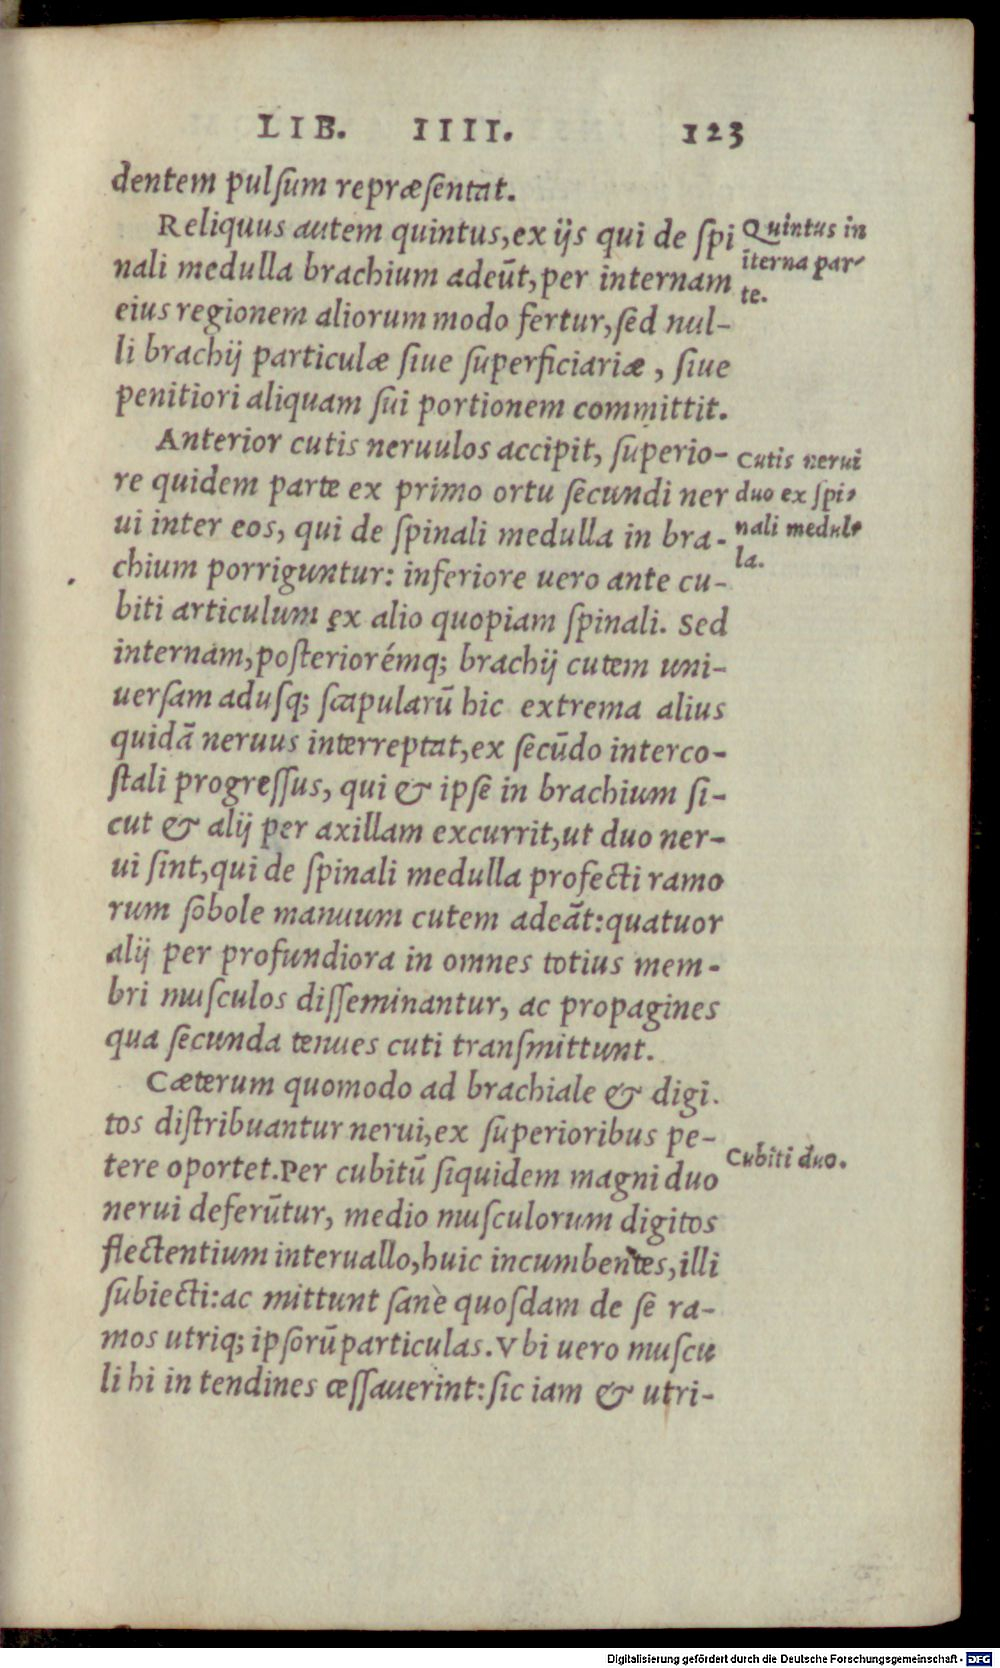 LIB. IIII. 123
dentem pulſum repræſentat.
Reliquus autem quintus, ex ijs qui de ſpi
nali medulla brachium adeūt, per internam
eius regionem aliorum modo fertur, ſed nul-
li brachij particulæ ſiue ſuperficiariæ, ſiue
penitiori aliquam ſui portionem committit.
Quintus in
īterna par-
te.
Anterior cutis neruulos accipit, ſuperio-
re quidem parte ex primo ortu ſecundi ner
ui inter eos, qui de ſpinali medulla in bra-
chium porriguntur: inferiore uero ante cu-
biti articulum ex alio quopiam ſpinali. Sed
internam, poſteriorémq; brachij cutem uni-
uerſam aduſq; ſcapularū hic extrema alius
quidā neruus interreptat, ex ſecūdo interco-
ſtali progreſſus, qui & ipſe in brachium ſi-
cut & alij per axillam excurrit, ut duo ner-
ui ſint, qui de ſpinali medulla profecti ramo
rum ſobole manuum cutem adeāt: quatuor
alij per profundiora in omnes totius mem-
bri muſculos diſſeminantur, ac propagines
qua ſecunda tenues cuti tranſmittunt.
Cutis nerui
duo ex ſpi-
nali medul-
la.
Cæterum quomodo ad brachiale & digi.
tos diſtribuantur nerui, ex ſuperioribus pe-
tere oportet. Per cubitū ſiquidem magni duo
nerui deferūtur, medio muſculorum digitos
flectentium interuallo, huic incumbentes, illi
ſubiecti: ac mittunt ſanè quoſdam de ſe ra-
mos utriq; ipſorū particulas. Vbi uero muſcu
li hi in tendines ceſſauerint: ſic iam & utri-
Cubiti duo.
Digitalisierung gefördert durch die Deutsche Forschungsgemeinschaft - DFG